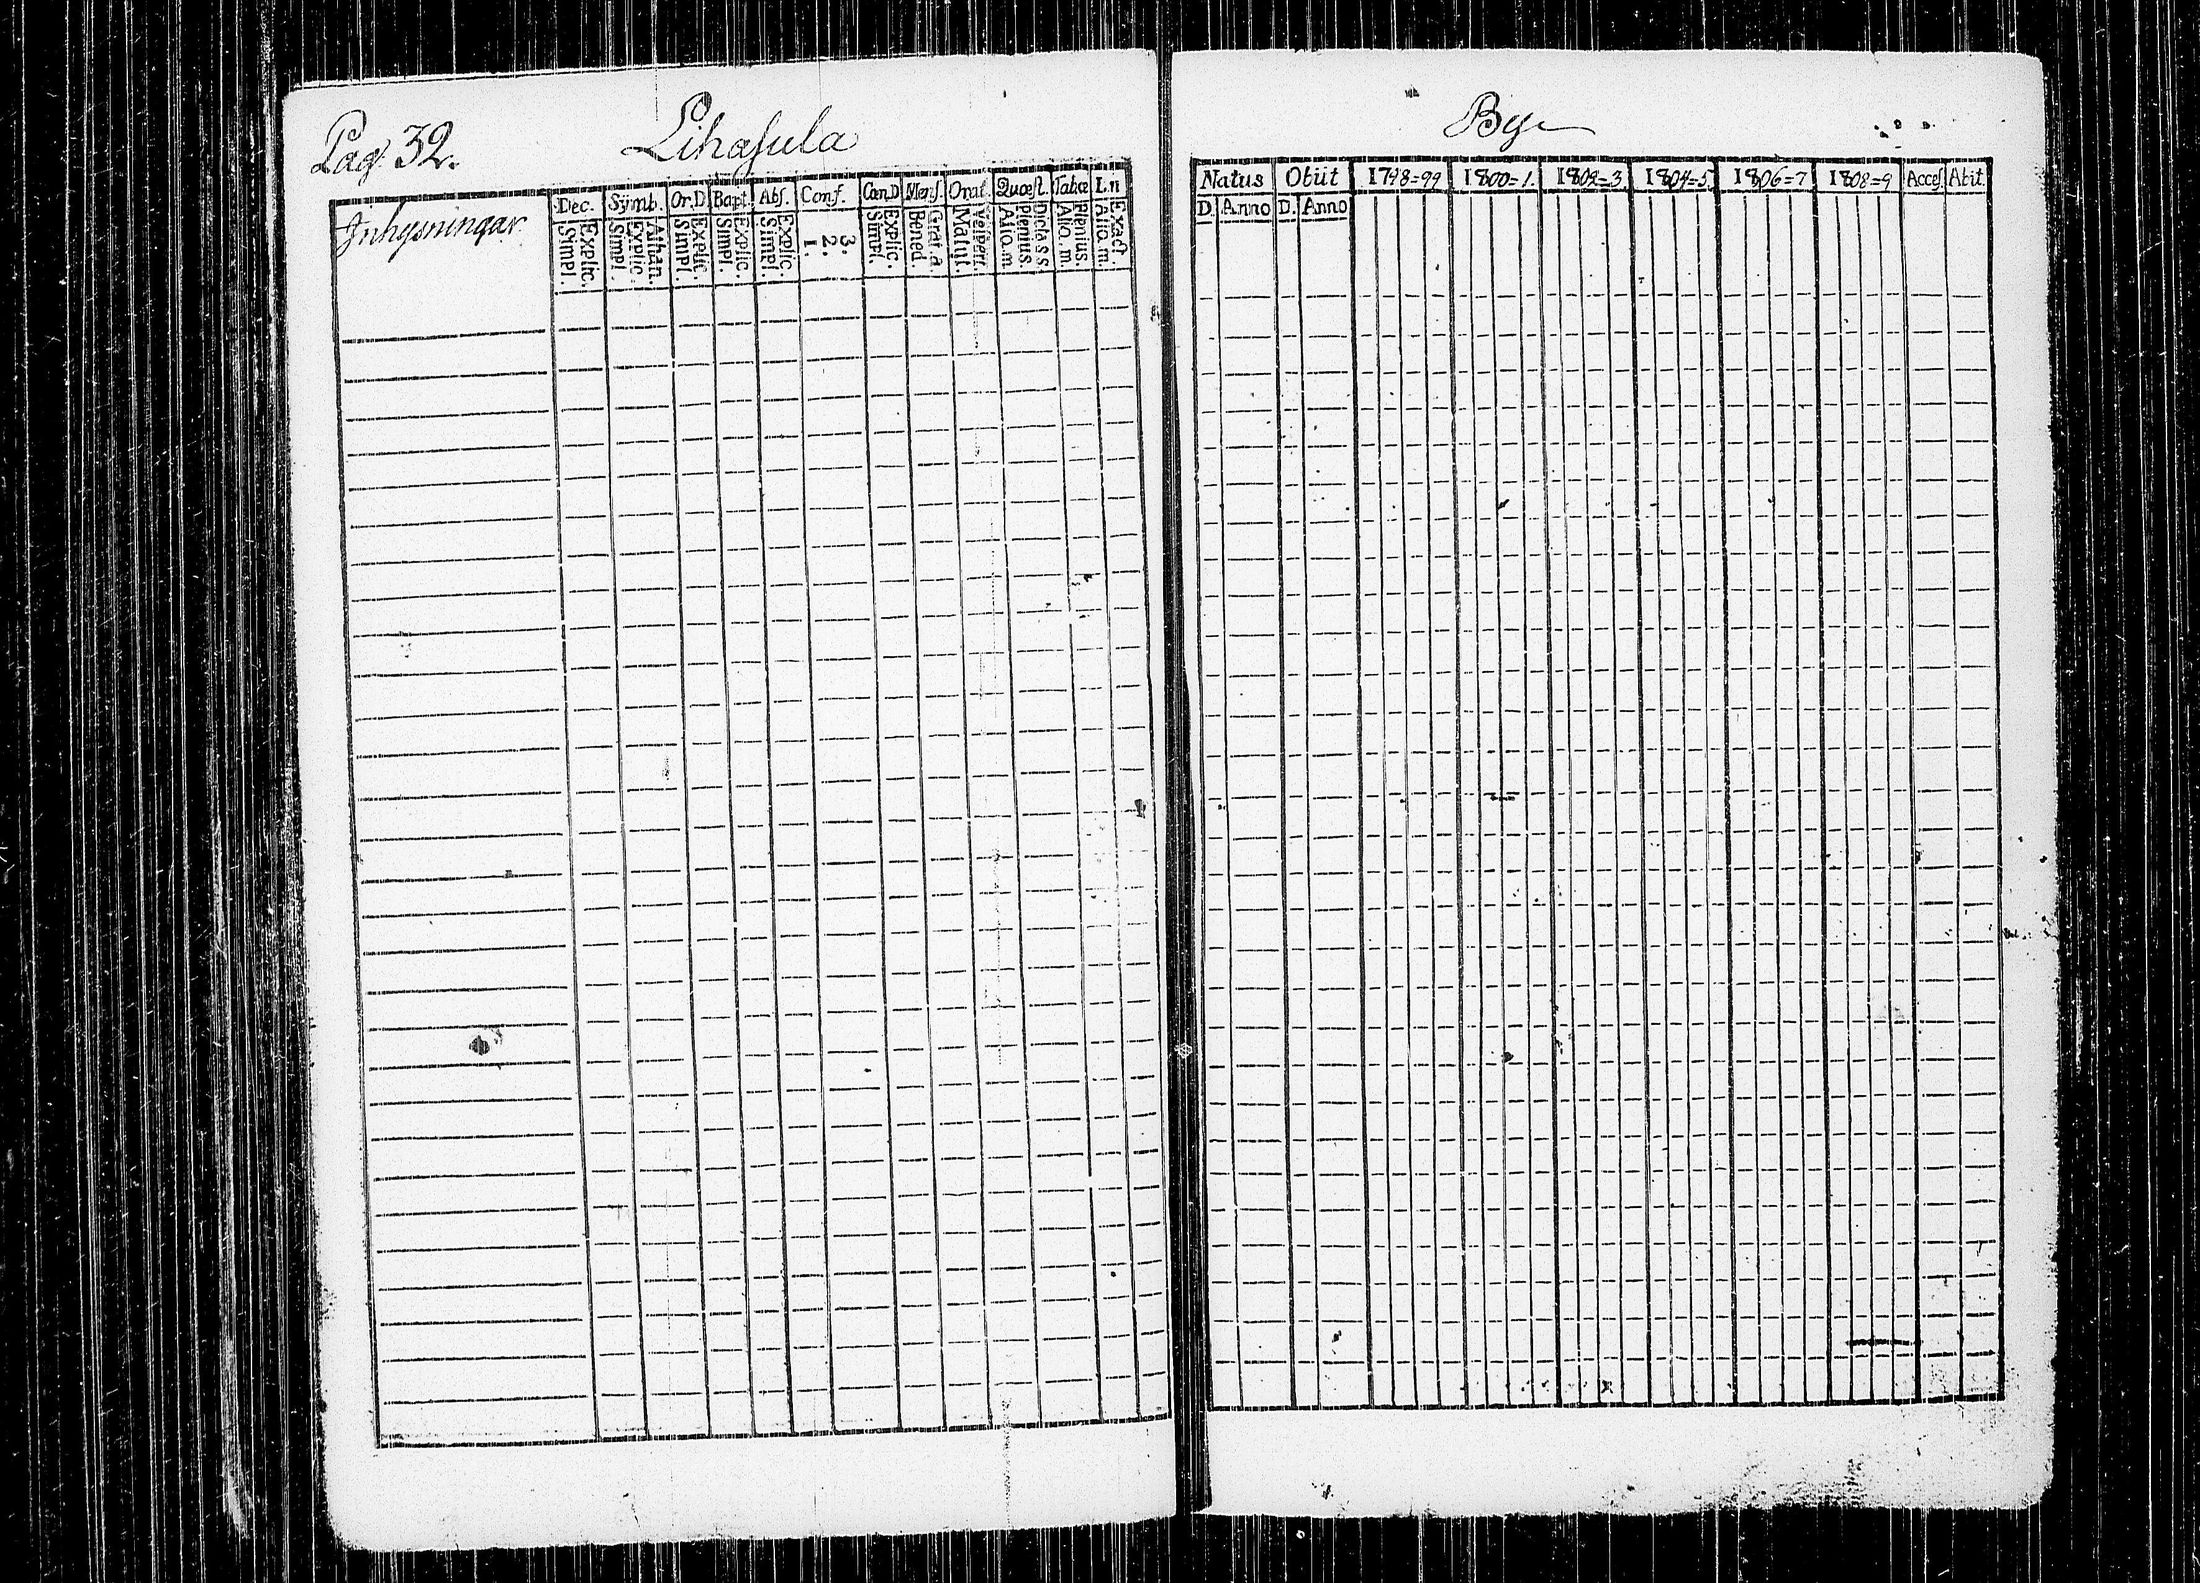 Pag. 32. Lihasula
Dec. Symb. Or.D Bapt. Abs. Conf. Cœn.D Mens. Orat. Quæst. Tabæ L.n
Inhysningar
Simpl. Explic. Simpl. Explic. Athan. Simpl. Explic. Simpl. Explic. Simpl. Explic. 1. 2. 3. Simpl. Explic. Bened. Grat.a. Matut. Vespert. Alio.m Plenius. Dicta S S. Alio.m. Plenius. Alio.m. Exact.
By
Natus Obiit 1798=99 1800=1. 1802=3 1804=5. 1806=7 1808=9 Acces. Abit.
D. Anno D. Anno